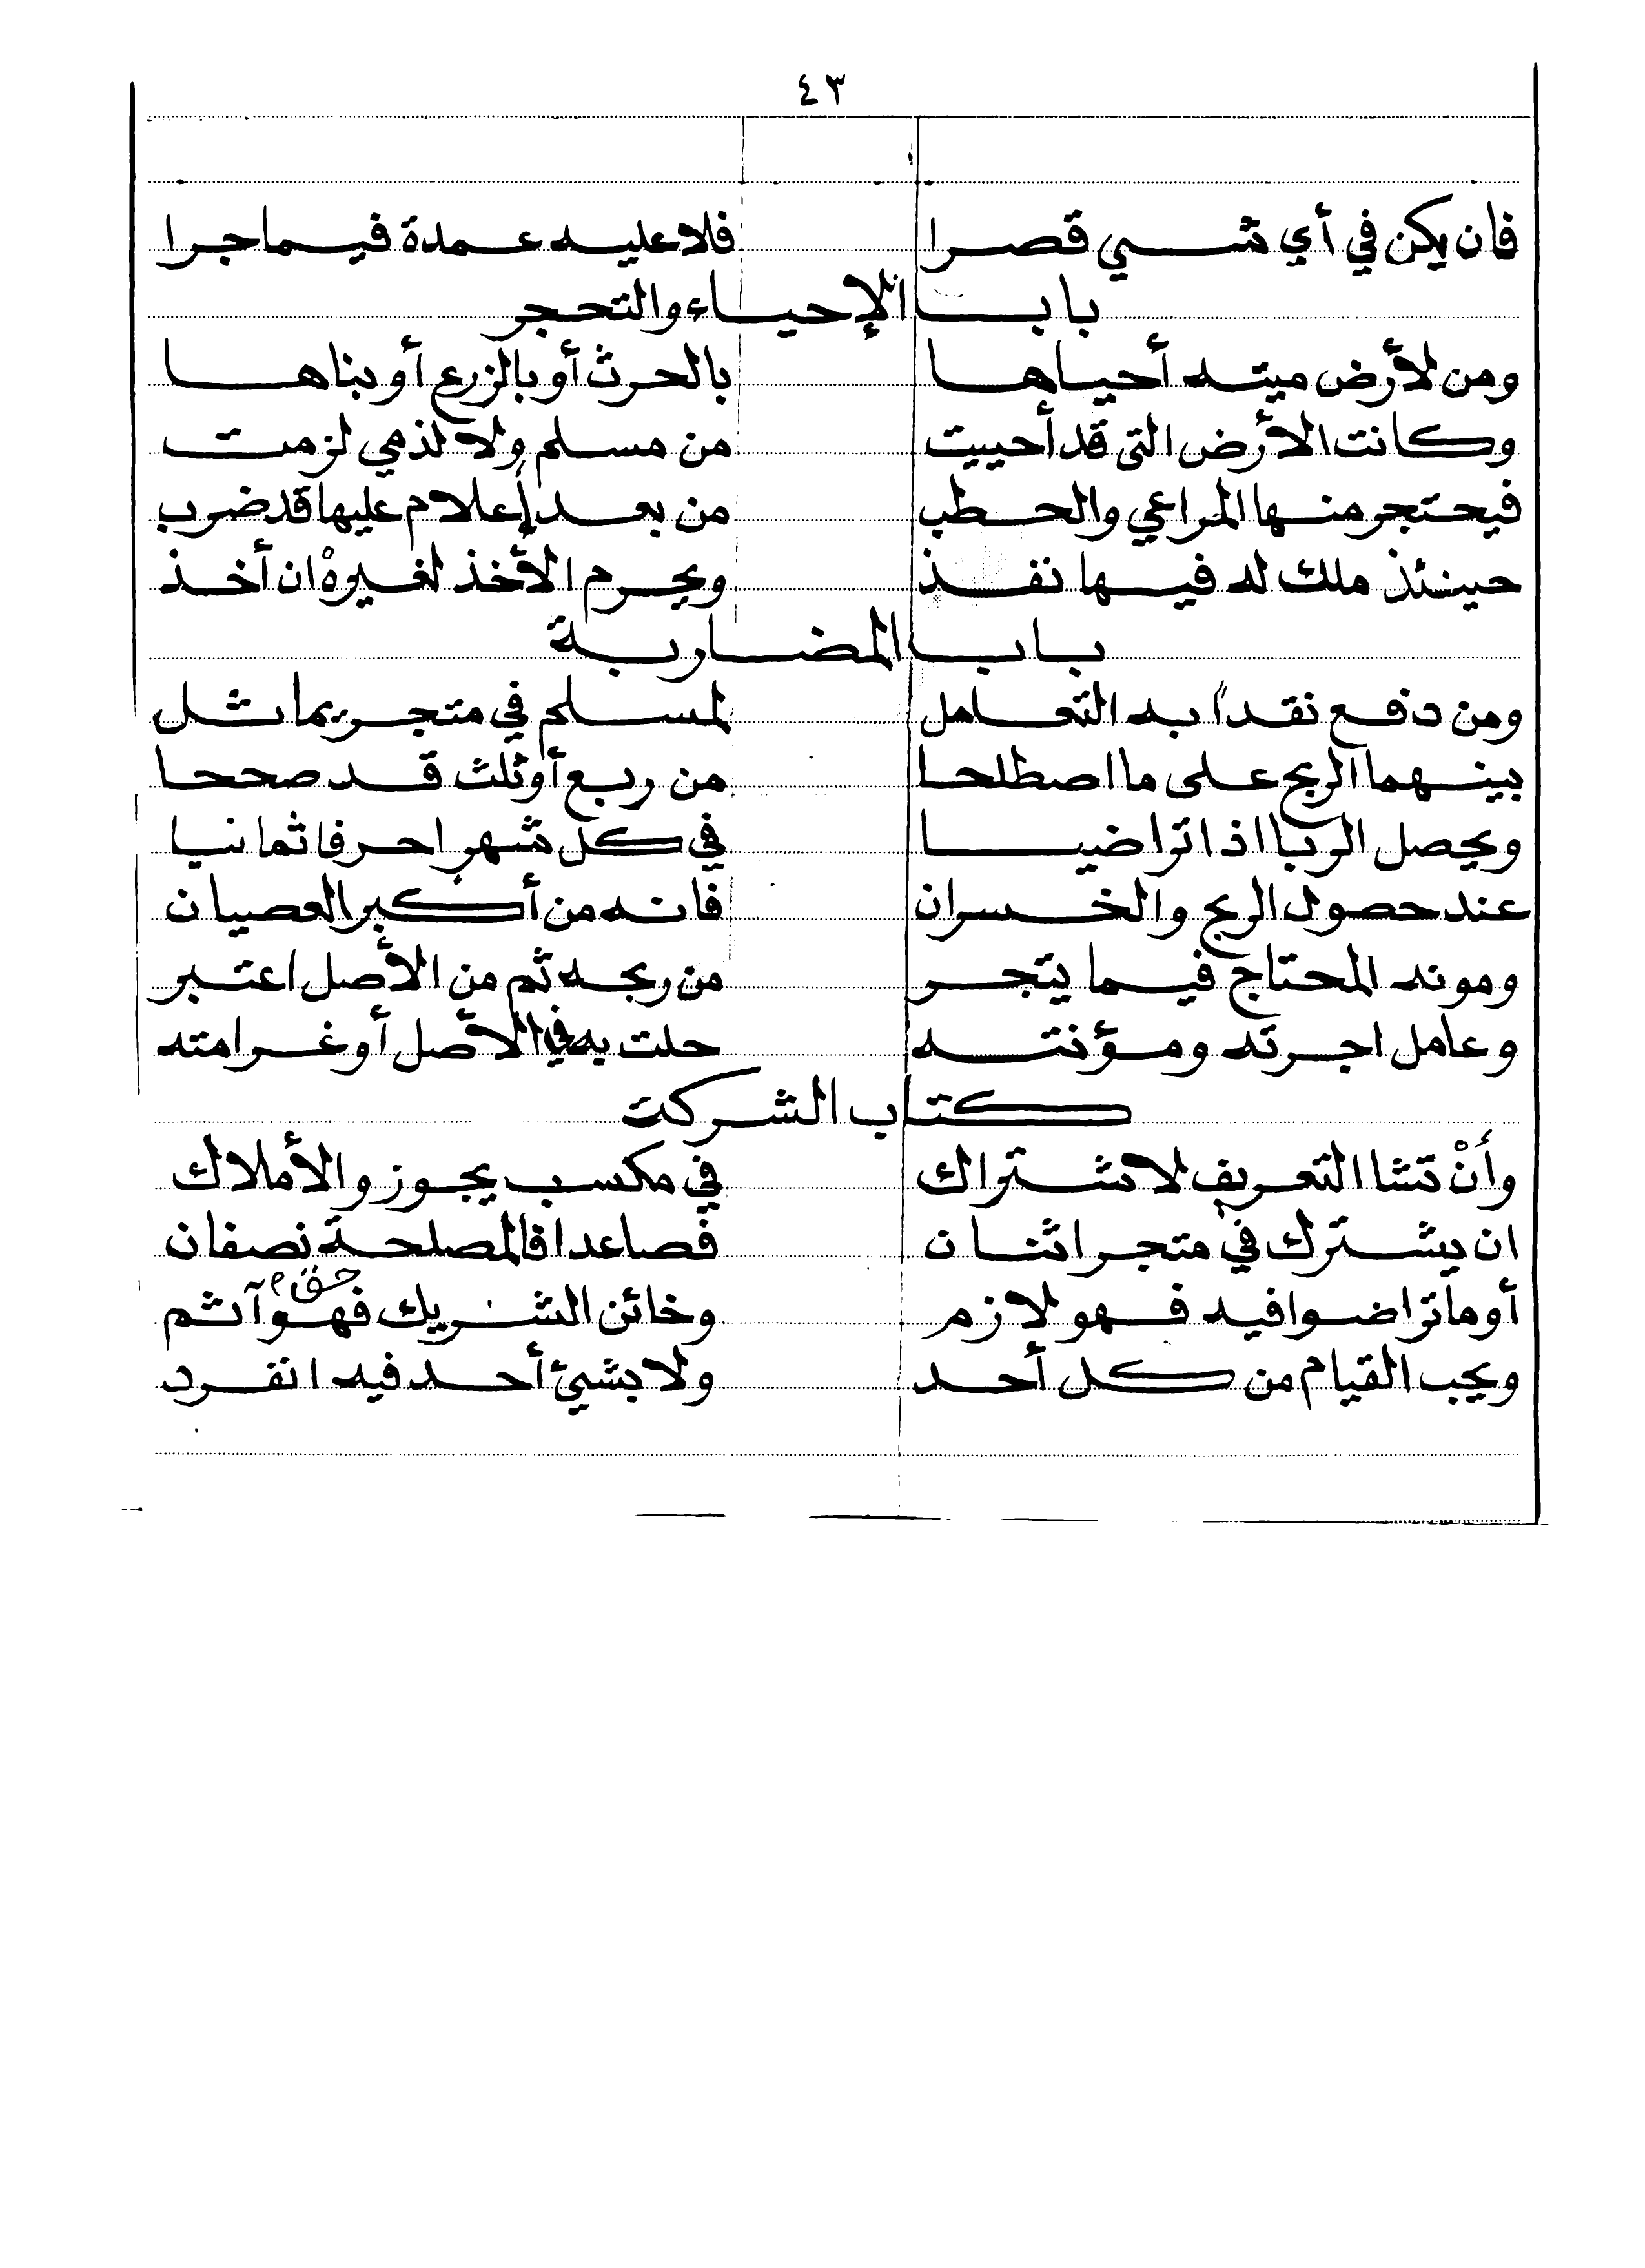 ٤٣
فان يكن في أي شيي قصرا فلا عليه عمدة فيما جرا
باب الإحياء والتحجر
ومن لأرض ميته أحياها بالحرث أو بالزرع أو بناها
وكانت الأرض التى قد أحييت من مسلم ولا لذمي لزمت
فيحتجر منها المراعي والحطب من بعد إعلام عليها قد ضرب
حينئذ ملك له فيها نفذ ويحرم الأخذ لغيره ان أخذ
باب المضاربة
ومن دفع نقداً به التعامل لمسلم في متجر يماثل
بينهما الربح على ما اصطلحا من ربع أو ثلث قد صححا
ويحصل الربا اذا تراضيا في كل شهر احرفا ثمانيا
عند حصول الربح والخسران فانه من أكبر العصيان
ومونه المحتاج فيما يتجر من ربحه ثم من الأصل اعتبر
وعامل اجرته ومؤنته حلت به في الأصل أو غرامته
كتاب الشركت
وأنْ تشا التعريف لاشتراك في مكسب يجوز والأملاك
ان يشترك في متجر اثنان فصاعدا فالمصلحة نصفان
أو ما تراضوا فيه فهو لازم وخائن الشريك فهو آثم
حق
ويجب القيام من كل أحد ولا بشيئ أحد فيه انفرد